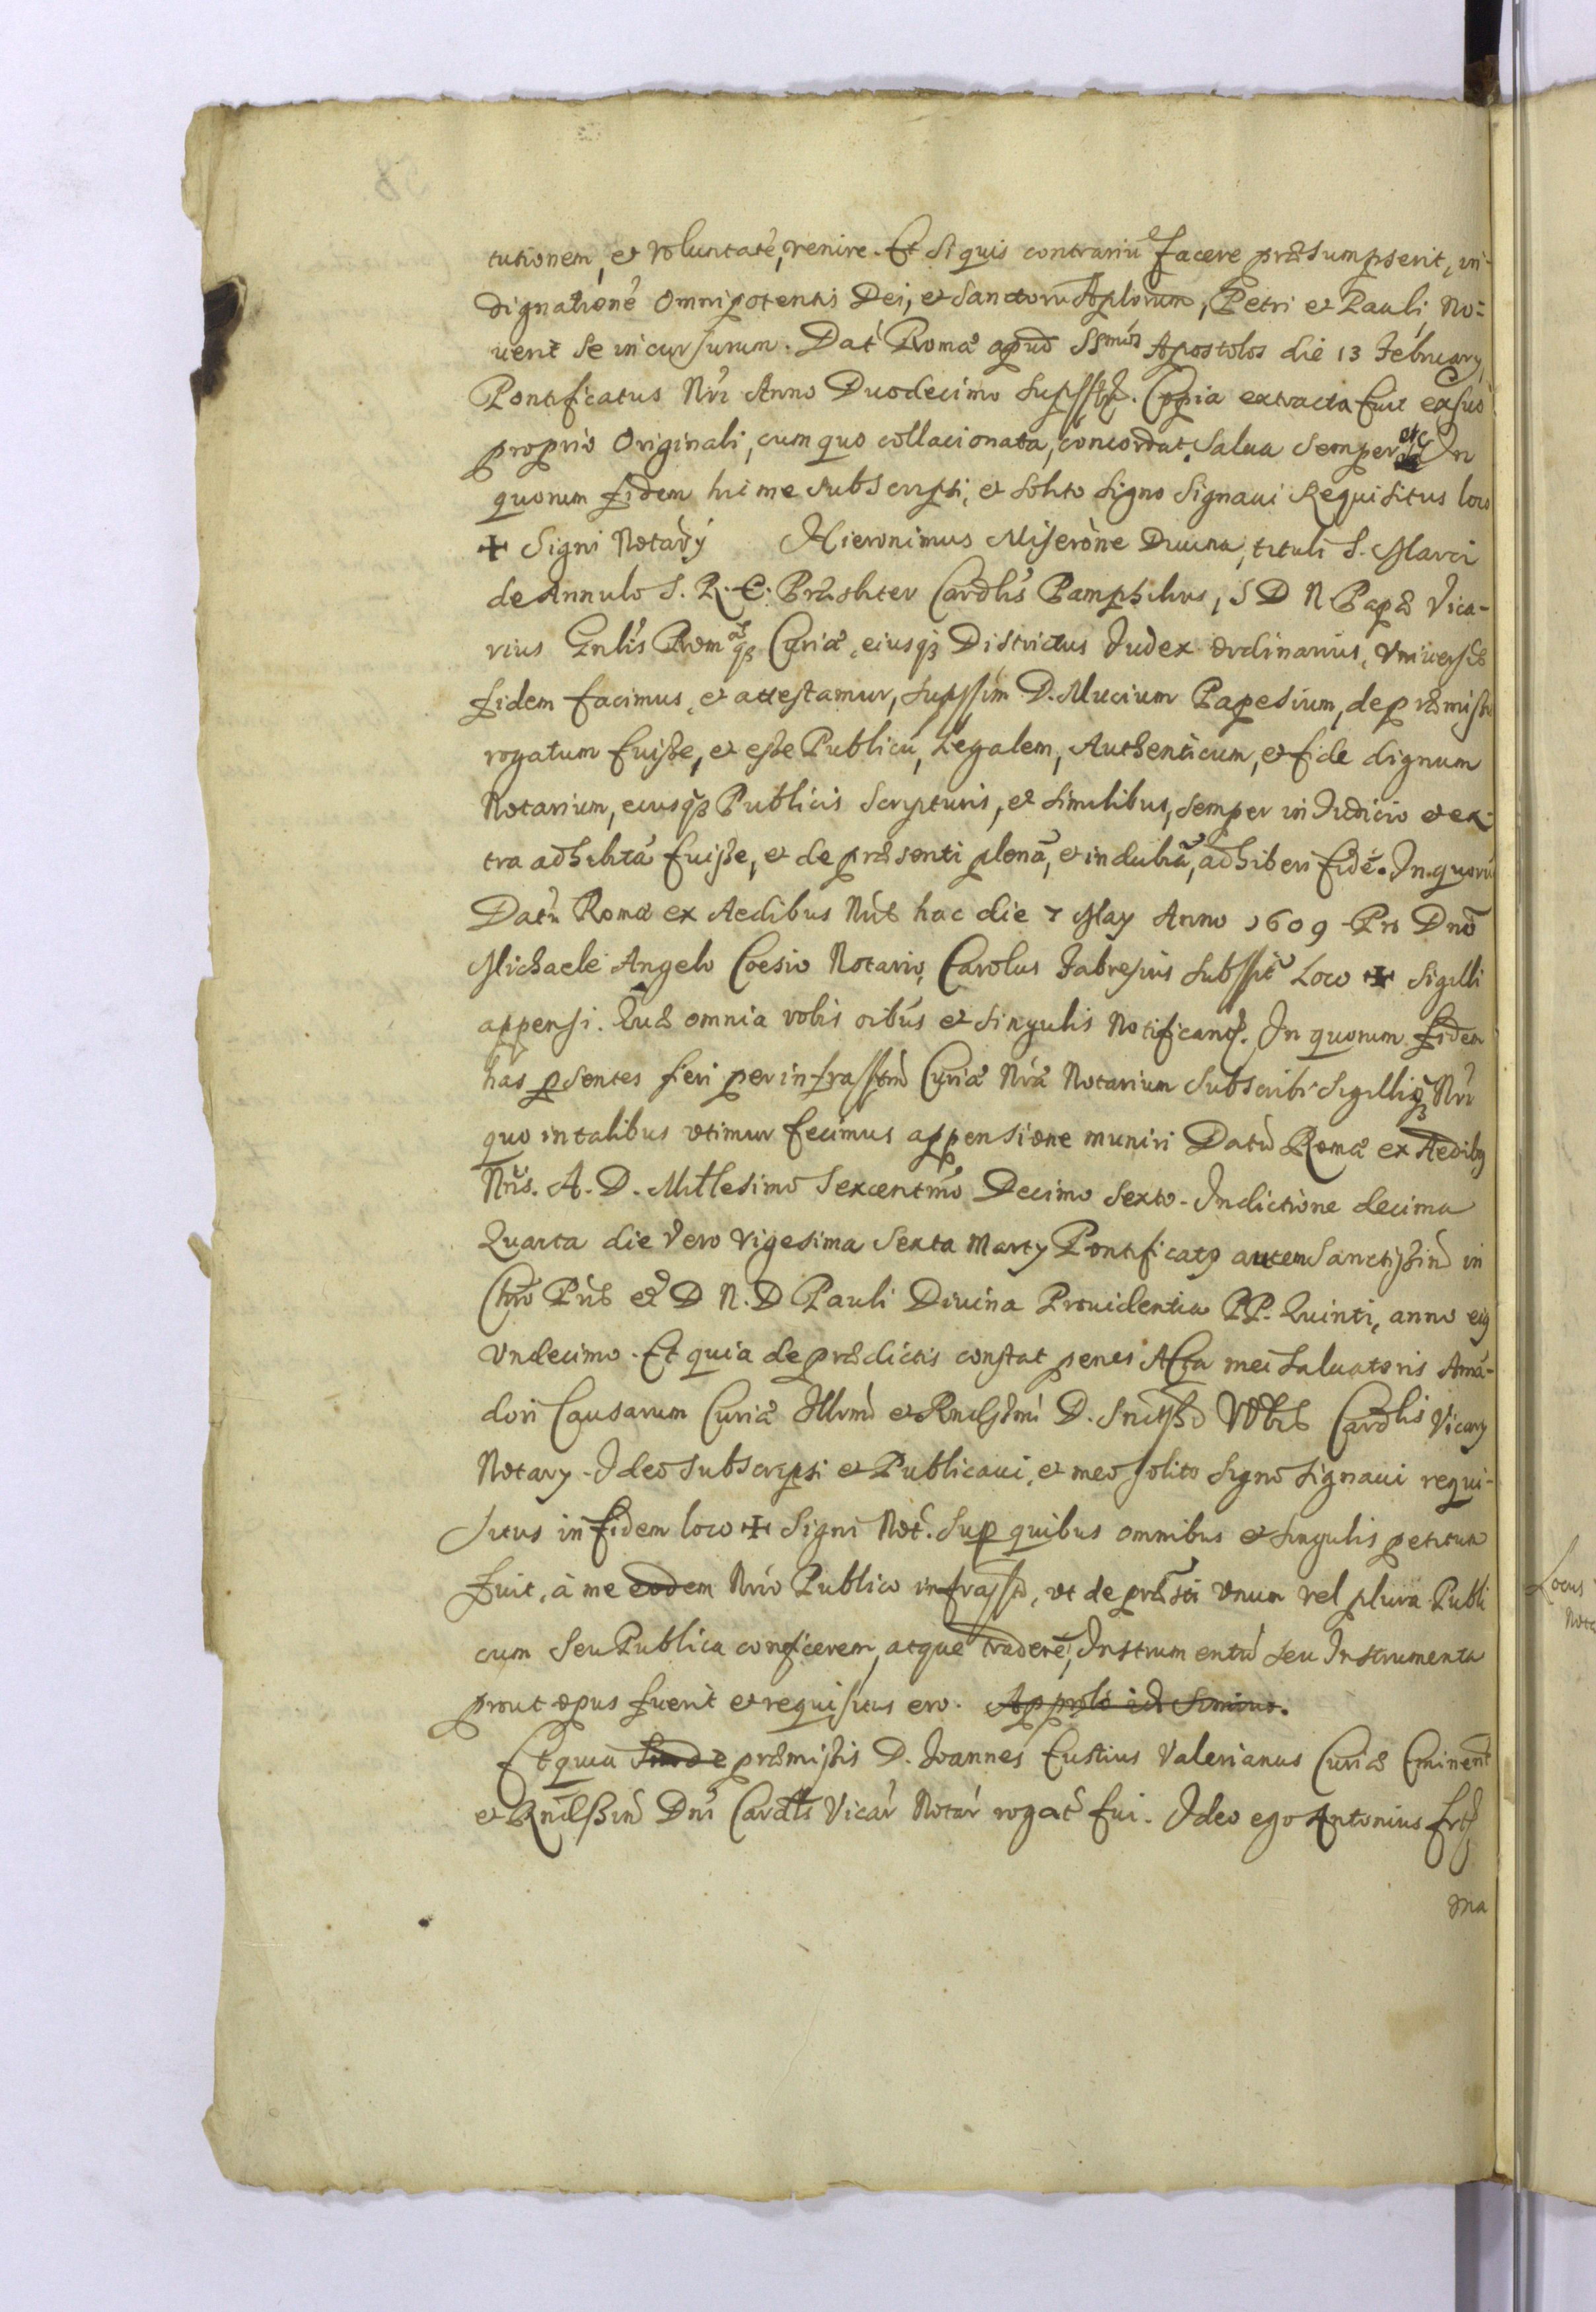 tutionem, et voluntatē, venire. Et si quis contrariū facere præsumpserit, in-
dignationē Omnipotentis Dei, et Sanctorū Aplorum, Petri et Pauli No-
uerit se incursurum. Dat Romæ apud SSmos Apostolos die 13 February,
Pontificatus Nri Anno Duodecimo Copia extracta fuit ex suo
proprio Originali, cum quo collacionata, concordat, Salua semper etc In
quorum fidem hic me subscripsi, et solito signo signaui Requisitus loco
✠ Signi Notarÿ Hieronimus Miserone Diuina, tituli S. Marci
de Annulo S. R. E. Præsbiter Cardlis Pamphilius, S D N Papæ Vica-
rius Gnlis Rom Curiæ, eiusq3 Districtus Judex ordinarius, Vniuersis
fidem facimus, et attestamur, D. Mucium Papesium, de præmissis
rogatum fuisse, et esse Publicū, Legalem, Authenticum, et fide dignum
Notarium, eiusq3 Publicis Scripturis, et similibus, semper in Judicio et ex-
tra adhibitā fuisse, et de præsenti plenā, et indubiā, adhiberi fidē. In quorū
Datū Romæ ex Aedibus Nris hac die 7 May Anno 1609 - Pro Dno
Michaele Angelo Coesio Notario, Carolus Fabresius Loco ✠ Sigilli
appensi. Quæ omnia vobis oibus et singulis Notificam9. In quorum fidem
has psentes fieri per infrasptū Curiæ Nræ Notarium Subscribi Sigilliq3 Nri
quo in talibus vtimur fecimus appensione muniri Datū Romæ ex Aedib9
Nris. A. D. Millesimo Sexcentmo Decimo Sexto - Indictione decima
Quarta die Vero Vigesima Sexta Marty Pontificat9 autem Sanctissimi in
Chro Pris et D N. D Pauli Diuina Prouidentia PP. Quinti, anno ei9
Vndecimo - Et quia de prædictis constat penes Acta mei Saluatoris Ama-
dori Causarum Curiæ Illrmi et Rmi D. Cardlis Vicary
Notary - Ideo subscripsi et Publicaui, et meo solito signo signaui requi-
situs in fidem loco ✠ Signi Not. Sup quibus omnibus et singulis petitum
fuit, à me eodem Nrio Publico infrasto, vt de præsti vnum vel plura Publi
cum Seu Publica conficerem, atque traderē, Instrumentū seu Instrumenta
prout opus fuerit et requisitus ero.
Et quia præmissis D. Ioannes Eustius Valerianus Curiæ Eminent
et Dni Cardlis Vicar Notar rogat fui. Ideo ego Antonius
ma
Locus
Nota